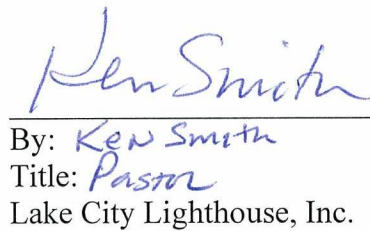 Ken Smith
By: Ken Smith
Title: Pastor
Lake City Lighthouse, Inc.